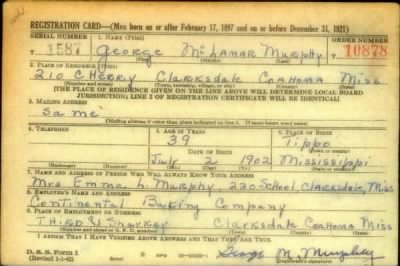 REGISTRATION CARD—(Men born on or after February 17, 1897 and on or before December 31, 1921)
SERIAL NUMBER 1. NAME (Print) ORDER NUMBER
T 1587 George McLamar Murphy T 10878
2. PLACE OF RESIDENCE (Print)
210 Cherry Clarksdale Coahoma Miss
(Number and street) (Town, township, village, or city) (County) (State)
[THE PLACE OF RESIDENCE GIVEN ON THE LINE ABOVE WILL DETERMINE LOCAL BOARD
JURISDICTION; LINE 2 OF REGISTRATION CERTIFICATE WILL BE IDENTICAL]
3. MAILING ADDRESS
Same
[Mailing address if other than place indicated on line 2. If same insert word same]
4. TELEPHONE 5. AGE IN YEARS 6. PLACE OF BIRTH
39 Tippo
DATE OF BIRTH (Town or county)
July 2 1902 Mississippi
(Exchange) (Number) (Mo.) (Day) (Yr.) (State or country)
7. NAME AND ADDRESS OF PERSON WHO WILL ALWAYS KNOW YOUR ADDRESS
Mrs Emma L. Murphy, 220 School, Clarksdale, Miss
8. EMPLOYER'S NAME AND ADDRESS
Continental Baking Company
9. PLACE OF EMPLOYMENT OR BUSINESS
Third & Sharkey Clarksdale Coahoma Miss
(Number and street or R. F. D. number) (Town) (County) (State)
I AFFIRM THAT I HAVE VERIFIED ABOVE ANSWERS AND THAT THEY ARE TRUE.
D. S. S. Form 1
(Revised 1-1-42) GPO George M. Murphy
(Registrant's signature)